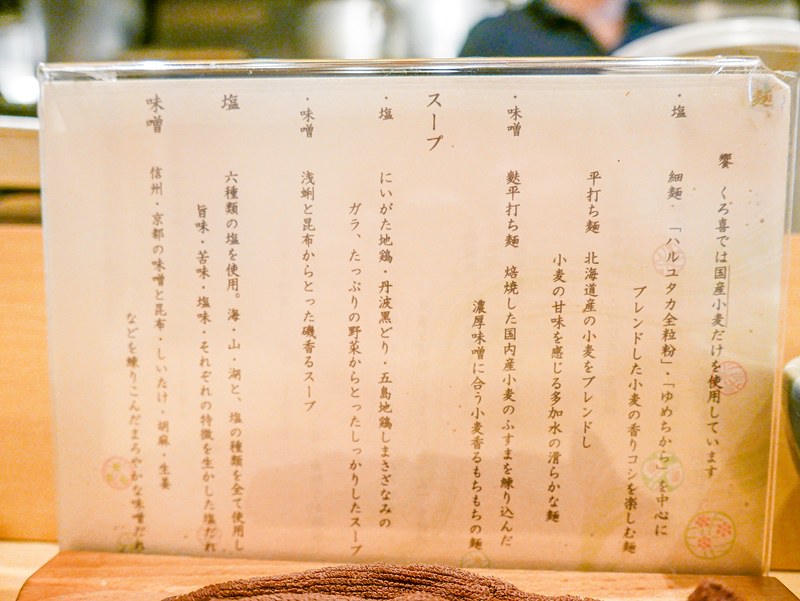 麺
饗 くろ喜では国産小麦だけを使用しています
・塩
細麺 「ハルユタカ全粒粉」・「ゆめちから」を中心に
ブレンドした小麦の香りコシを楽しむ麺
平打ち麺 北海道産の小麦をブレンドし
小麦の甘味を感じる多加水の滑らかな麺
・味噌
麩平打ち麺 焙焼した国内産小麦のふすまを練り込んだ
濃厚味噌に合う小麦香るもちもちの麺
スープ
・塩
にいがた地鶏・丹波黒どり・五島地鶏しまさざなみの
ガラ、たっぷりの野菜からとったしっかりしたスープ
・味噌
浅蜊と昆布からとった磯香るスープ
塩
六種類の塩を使用。海・山・湖と、塩の種類を全て使用し
旨味・苦味・塩味・それぞれの特徴を生かした塩だれ
味噌
信州・京都の味噌と昆布・しいたけ・胡麻・生姜
などを練りこんだまろやかな味噌だれ